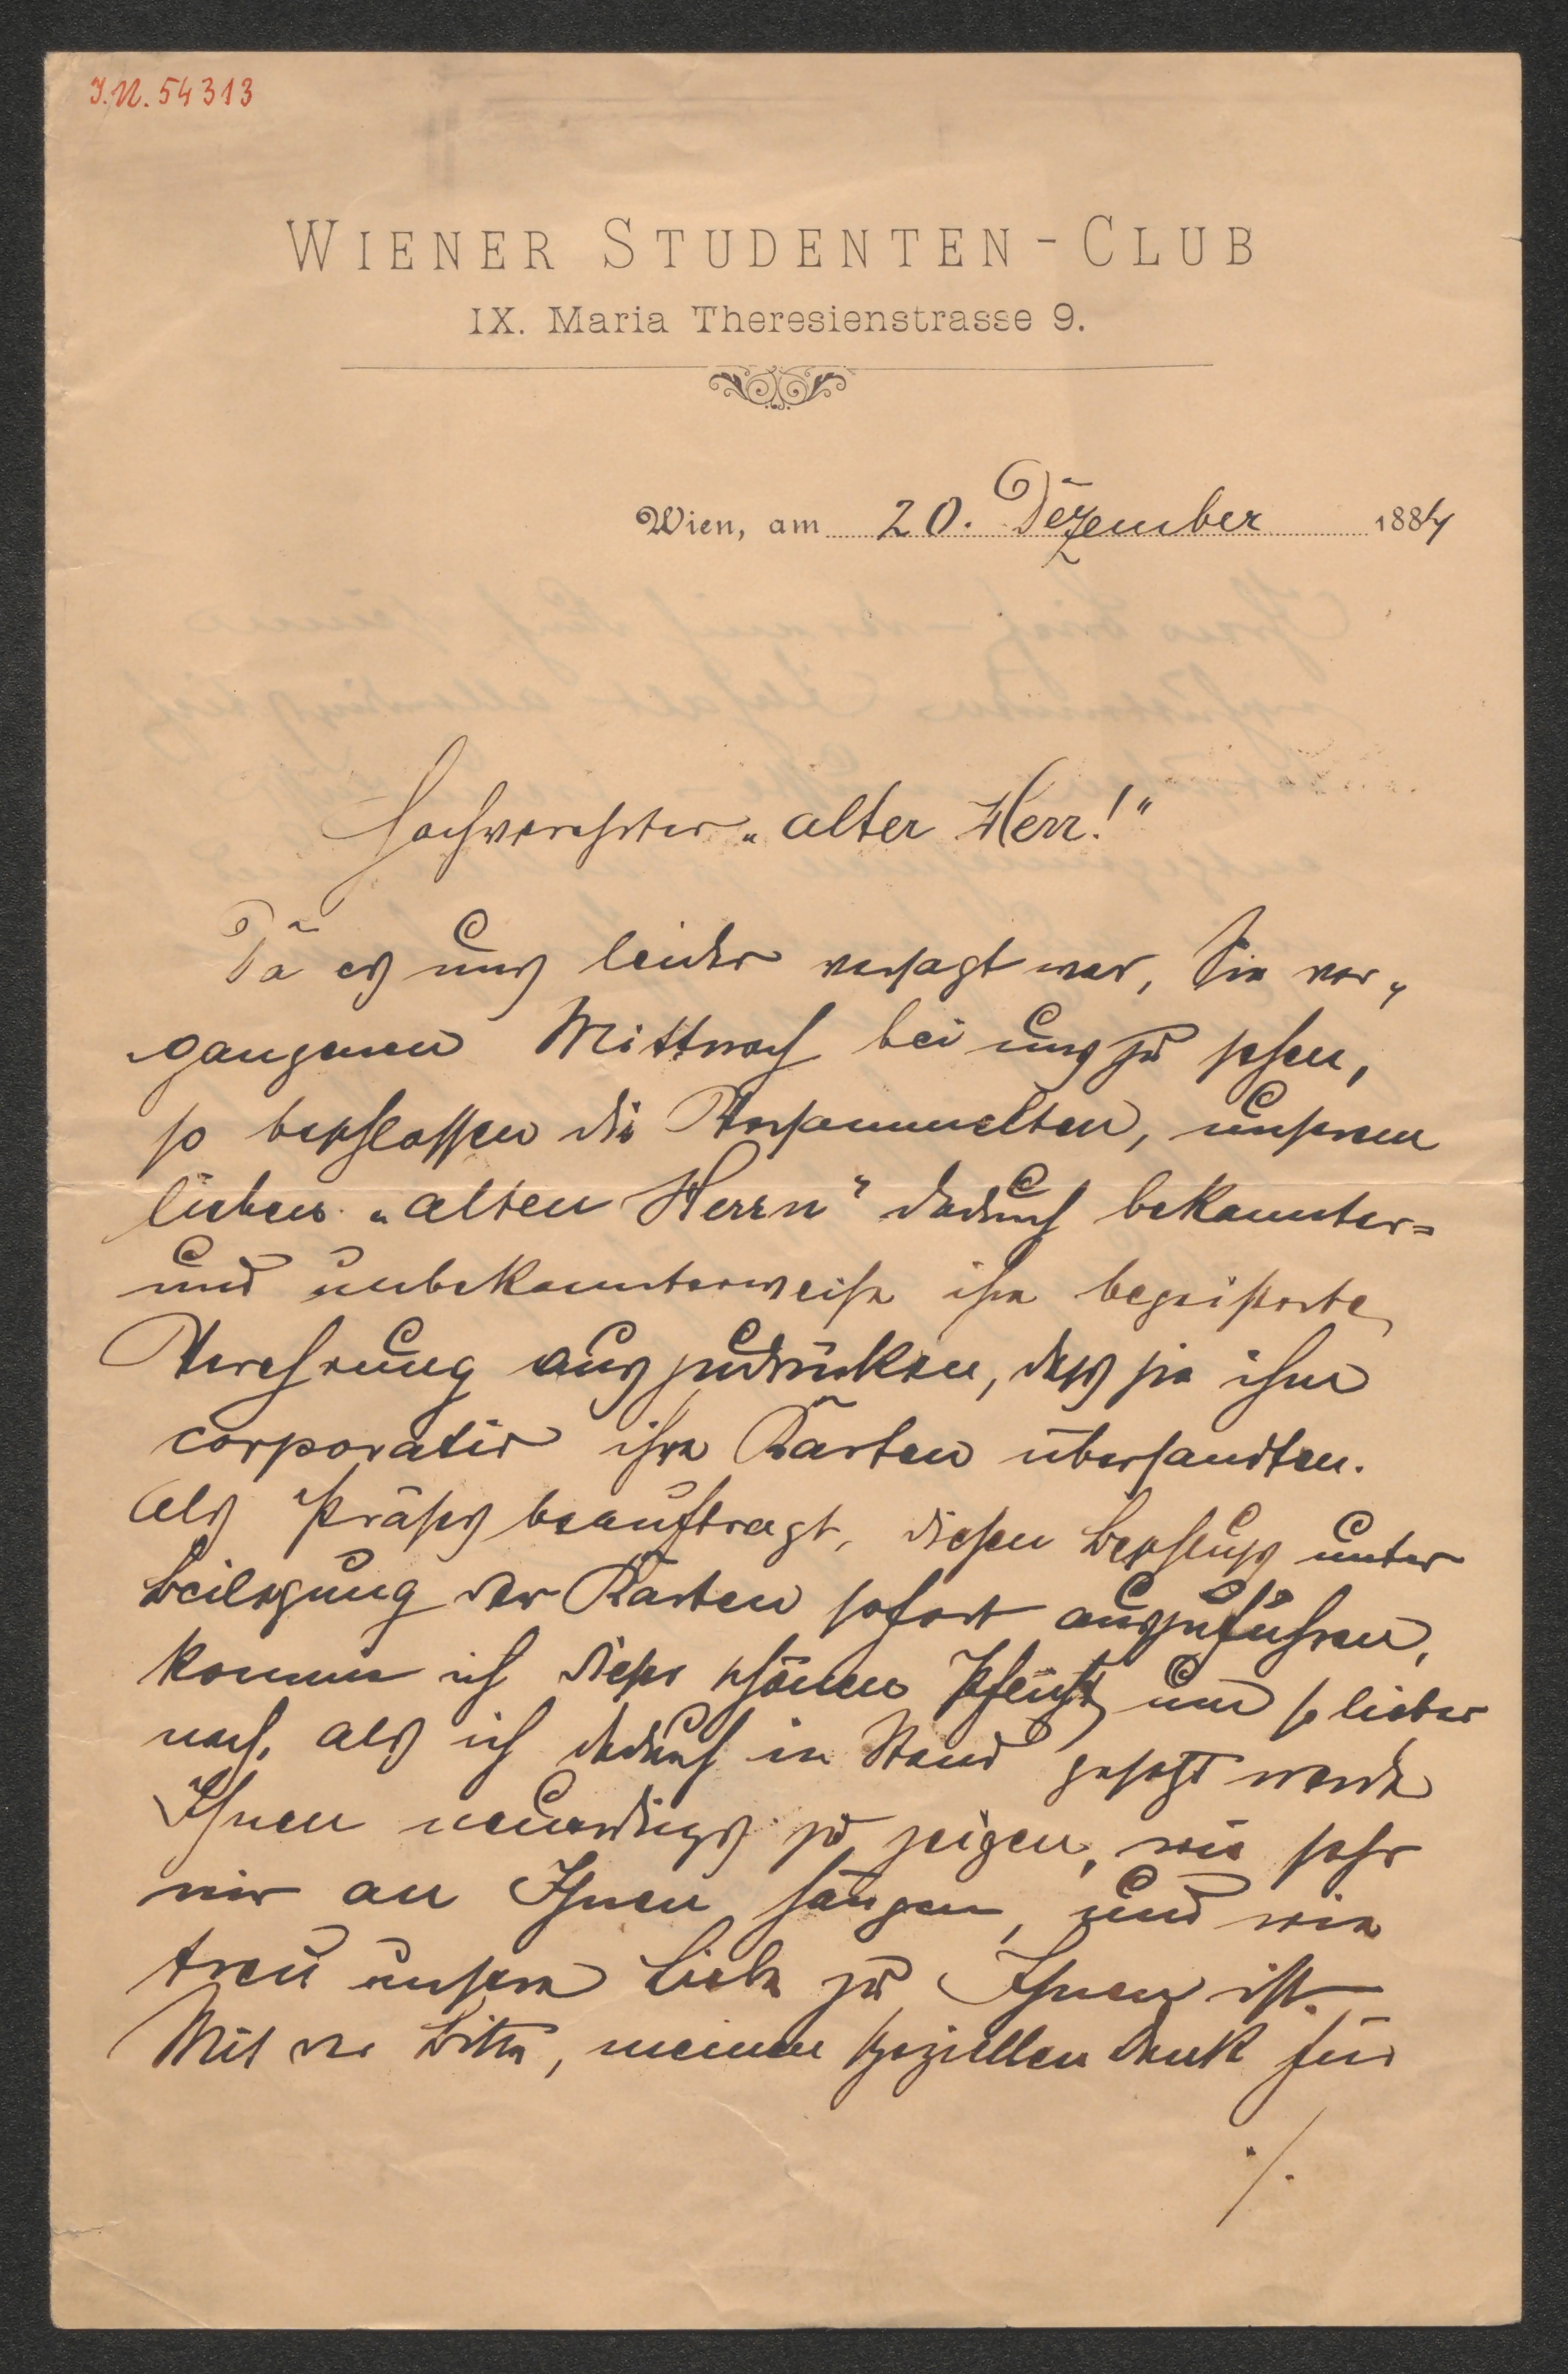 I.N. 54313
WIENER STUDENTEN-CLUB
IX. Maria Theresienstrasse 9.
Wien, am 20. Dezember 1884
Hochverehrter „alter Herr!“
Da es uns leider versagt war, Sie ver„
gangenen Mittwoch bei uns zu sehen,
so beschlossen die Versammelten, unserem
lieben „alten Herrn“ dadurch bekannter=
und unbekannterweise ihre begeisterte
Verehrung auszudrücken, dass sie ihm
corporativ ihre Karten übersandten.
Als Präses beauftragt, diesen Beschluss unter
Beilegung der Karten sofort auszuführen,
komme ich dieser schönen Pflicht um so lieber
nach, als ich dadurch in Stand gesetzt werde
Ihnen neuerdings zu zeigen, wie sehr
wir an Ihnen hängen, und wie
treu unsere Liebe zu Ihnen ist.
Mit der Bitte, meinen speziellen Dank für
./.